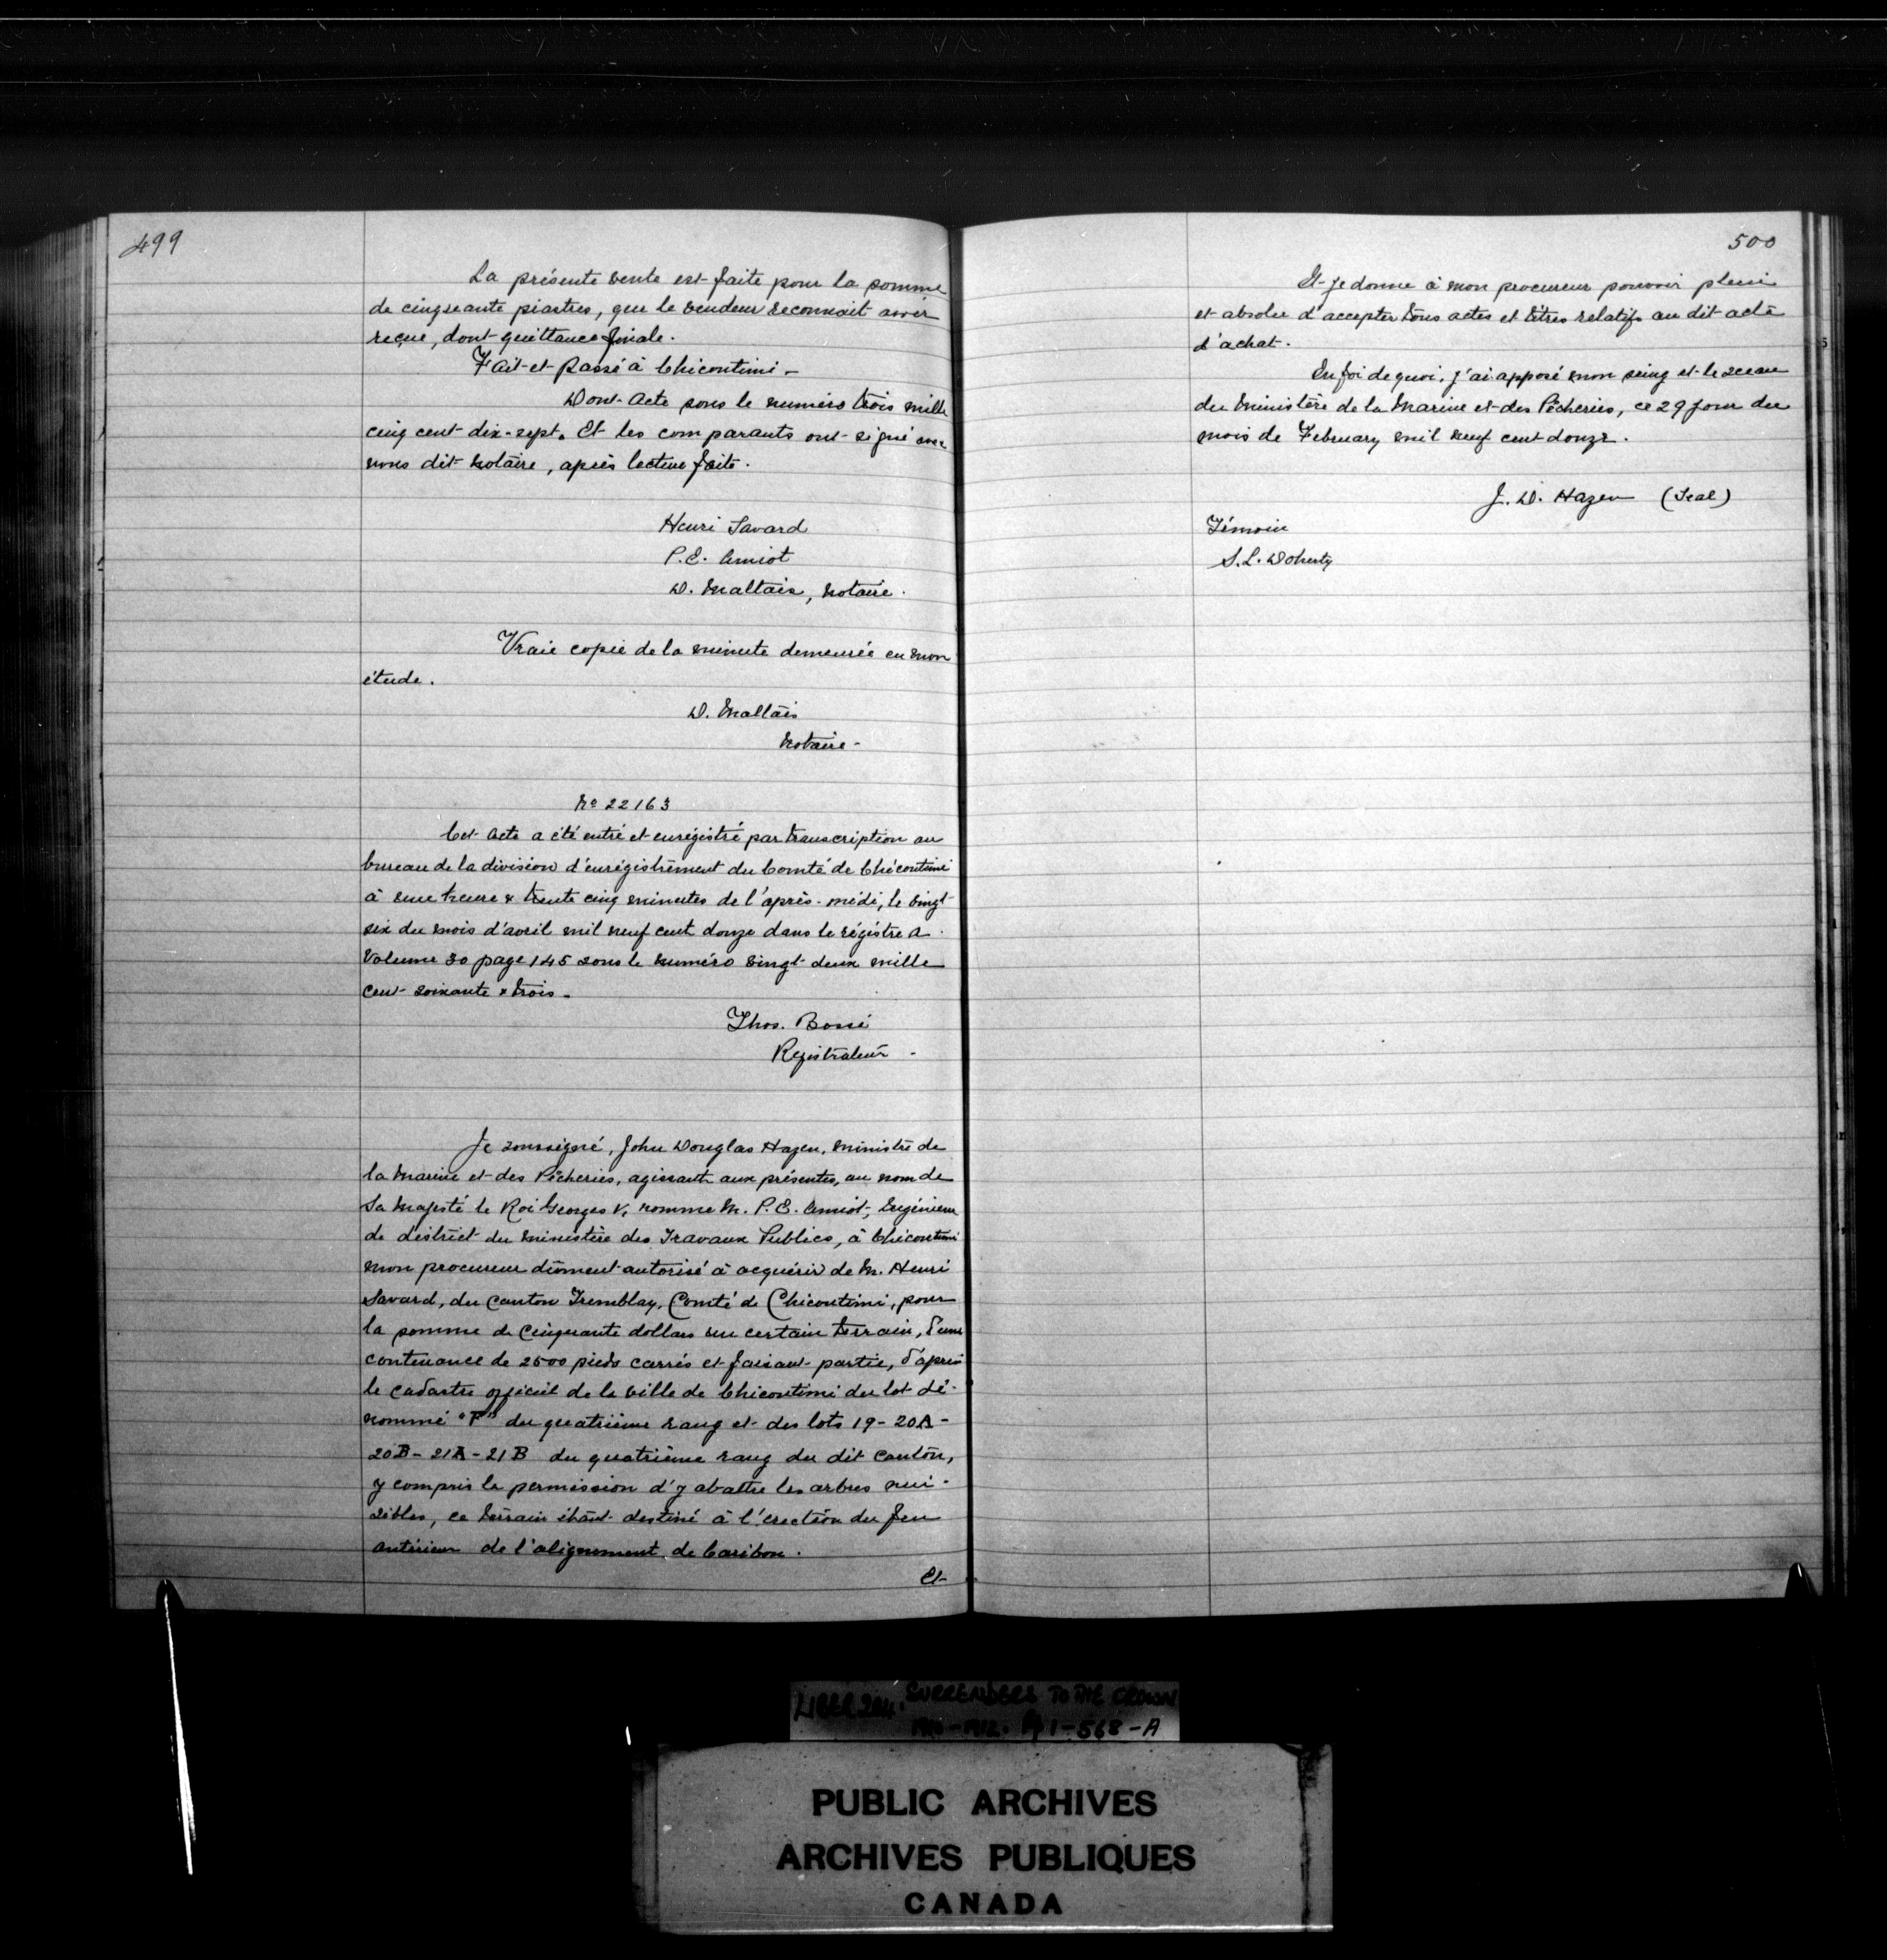 499
La présente vente est faite pour la somme
de cinquante piastres, que le vendeur reconnait avoir
reçue, dont quittance finale.
Fait et Passé à Chicoutimi -
Dont Acte sous le numéro trois mille
cinq cent dix-sept. Et les comparants ont signé avec
nous dit notaire, après lecture faite.
Henri Savard
P.E. Amiot
D. Maltais, Notaire.
Vraie copie de la minute demeurée en mon
étude.
D. Maltais
Notaire -
No 22163
Cet Acte a été entré et enrégistré par transcription au
bureau de la division d'enrégistrement du Comté de Chicoutimi
à une heure & trente cinq minutes de l'après-midi, le vingt
six du mois d'avril mil neuf cent douze dans le régistre A.
Volume 30 page 145 sous le numéro vingt deux mille
cent soixante & trois -
Thos. Bossé
Registrateur -
Je soussigné, John Douglas Hazen, Ministre de
la Marine et des Pêcheries, agissant aux présentes, au nom de
Sa Majesté le Roi Georges V, nomme M. P.E. Amiot, Ingénieur
de district du Ministère des Travaux Publics, à Chicoutimi
mon procureur dûment autorisé à acquérir de M. Henri
Savard, du Canton Tremblay, Comté de Chicoutimi, pour
la somme de Cinquante dollars un certain terrain, d'une
contenance de 2500 pieds carrés et faisant partie, d'après
le cadastre officiel de la ville de Chicoutimi du lot dé-
nommé "F" du quatrième rang et des lots 19-20A-
20B-21A-21B du quatrième rang du dit canton,
y compris la permission d'y abattre les arbres nui-
sibles, ce terrain étant destiné à l'érection du feu
antérieur de l'alignement de Caribou.
Et
500
Et je donne à mon procureur pouvoir plein
et absolu d'accepter tous actes et titres relatifs au dit acte
d'achat.
En foi de quoi, j'ai apposé mon seing et le sceau
du Ministère de la Marine et des Pêcheries, ce 29 jour du
mois de February mil neuf cent douze.
J. D. Hazen (Seal)
Témoin
S.L. Doherty
LIBER 204. SURRENDERS TO THE CROWN
1910-1912. Pp 1-568-A
PUBLIC ARCHIVES
ARCHIVES PUBLIQUES
CANADA